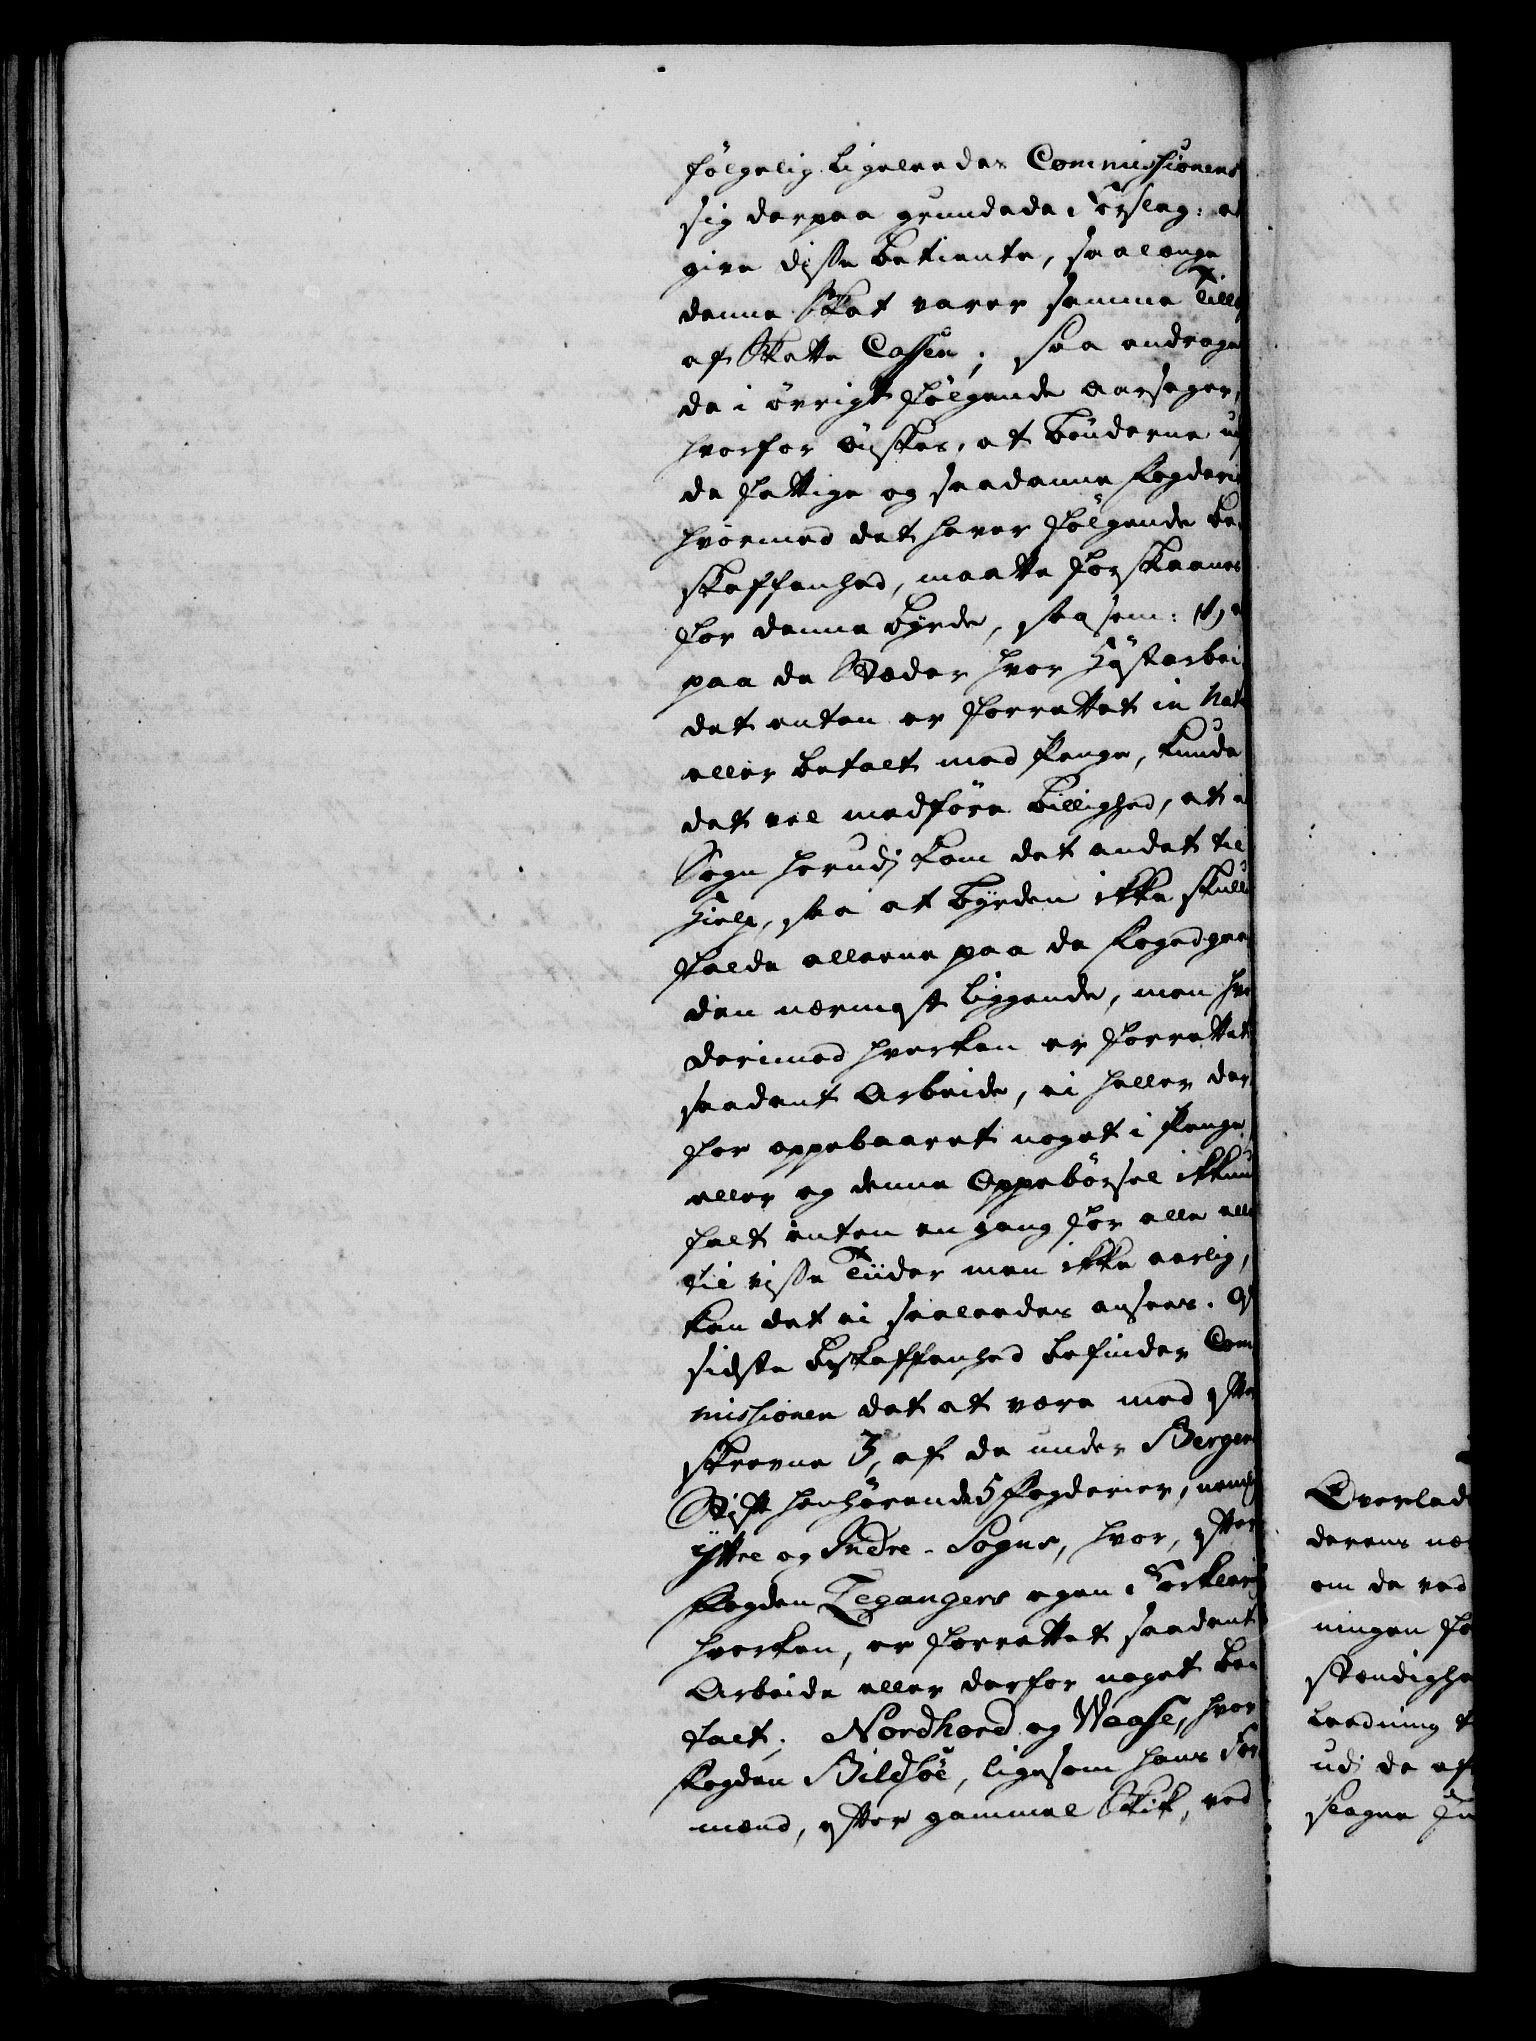 følgelig ligeleedes Commissionens
sig derpaa grundede Forslag: at
give disse betiente, saalænge
denne Skat varer samme Till
af Skatte Cassen; saa andrage
de i øvrigt følgende Aarsager,
hvorfor ønskes, at bønderne ud
de fattige og saadanne Fogderie
hvormed det haver følgende be
skaffenhed, maatte forskaanes
for denne byrde, saasom: 1) at
paa de Stæder hvor Høstarbei
det enten er forrettet in Nat
eller betalt med Penge, kunde
det vel medføre billighed, at i
Sogn herudj kom det andet til
Hielp, saa at byrden ikke skulle
falde alleene paa de Fogedgaar
den nærmest liggende, men hvor
derimod hverken er forrettet
saadant Arbeide, ei heller der
for oppebaaret noget i Penge,
eller og denne Oppebørsel ikkun
falt enten en gang for alle elle
til visse Tiider men ikke aarlig,
kan det ei saaleedes ansees. Af
sidste beskaffenhed befinder Com
missionen det at være med efter
skrevne 3, af de under Bergens
Stift henhørende 5 Fogderier, neml
Yttre og Indre-Sogns, hvor, efter
Fogden Legangers egen Forklaring
hverken, er forrettet saadant
Arbeide eller derfor noget be
talt; Nordhord og Waase, hvor
Fogden Bildsøe, ligesom hans For
mænd, efter gammel Skik, ved
Overlad
deres næ
om de ved
ningen fo
stændighe
leedning t
udj de af
slagne In